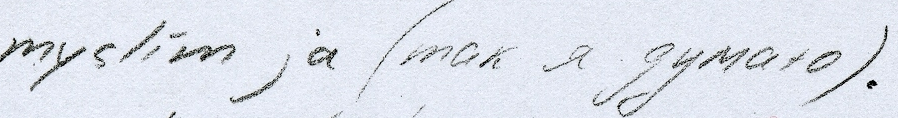 myslim ja (так я думаю).